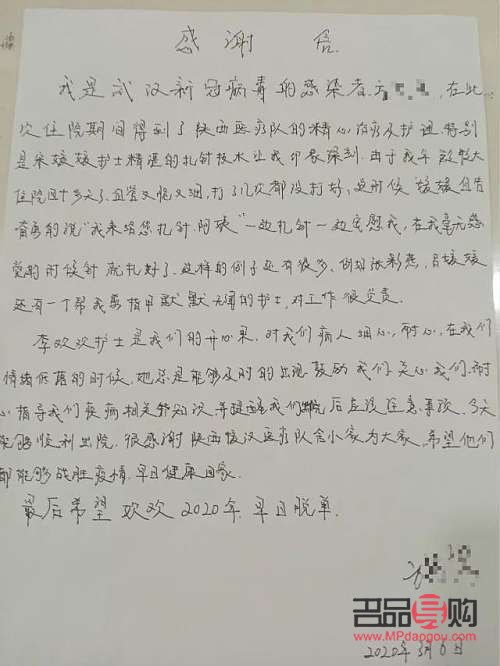 感谢信
我是武汉新冠病毒的感染者方 在此
次住院期间得到了陕西医疗队的精心治疗及护理.特别
是朱媛媛护士精湛的扎针技术让我印象深刻.由于我年龄较大
住院四十多天了.血管又脆又细,打了几次都没打好,这时候"媛媛自告
奋勇的说"我来给您扎针,阿姨"一边扎针一边安慰我,在我毫无感
觉的时候针就扎好了.这样的例子还有很多,例如张彩燕,吕媛媛
还有一个帮我剪指甲默默无闻的护士,对工作很负责.
李欢欢护士是我们的开心果.对我们病人细心,耐心,在我们
情绪低落的时候,她总是能够及时的出现鼓励我们.关心我们.耐
心指导我们疾病相关知识并提醒我们出院后应该注意事项.今天
能够顺利出院,很感谢陕西援汉医疗队舍小家为大家.希望他们
都能够战胜疫情.早日健康回家.
最后希望欢欢2020年.早日脱单.
2020年3月6日
名品导购
www.MPdaogou.com